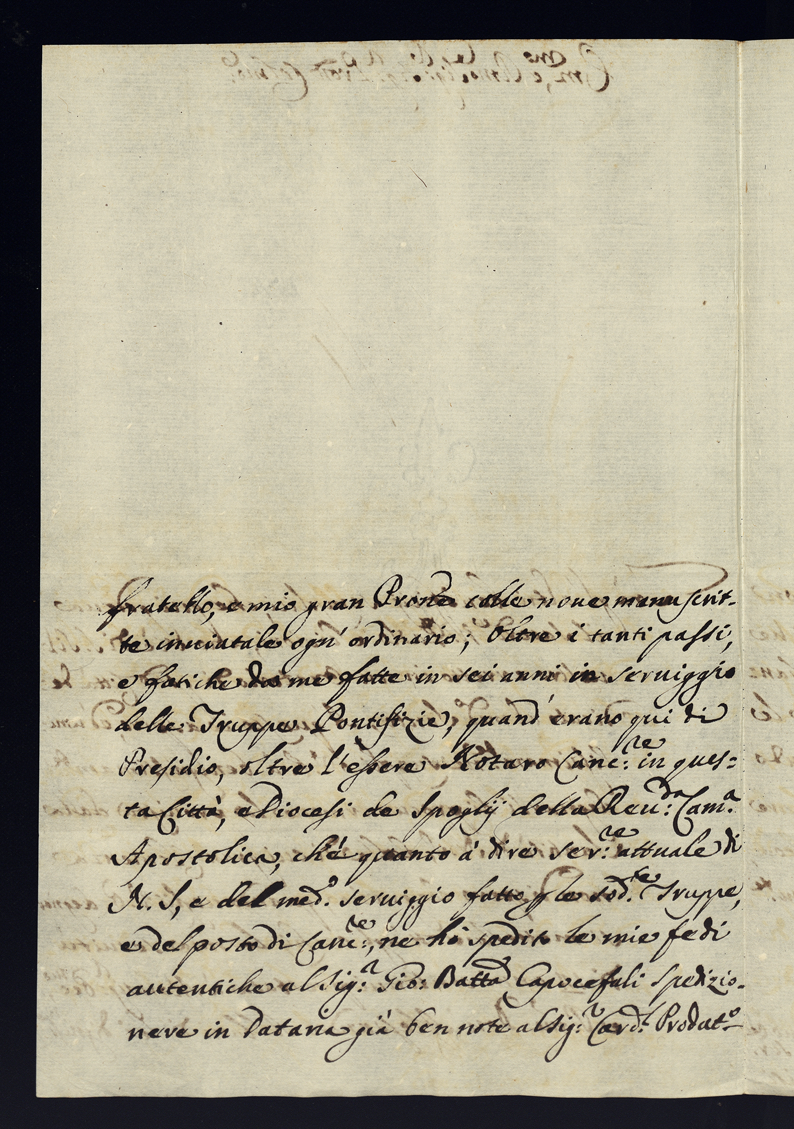 fratello, e mio gran Prone colle nove manuscrit-
te inviatale ogn' ordinario; Oltre i tanti passi,
e fatiche da me fatte in sei anni in serviggio
delle Truppe Pontifizie, quand' erano qui di
Presidio, oltre l'essere Notaro Canc:re in ques=
ta Città, e Diocesi de Spoglij della Reu:da Cam:a
Apostolica, ché quanto à dire ser:re attuale di
N. S, e del med:o serviggio fatto p le sod:te Truppe,
e del posto di Canc:re, ne hò spedito le mie fedi
autentiche al Sig:r Gio: Batta Capocefali spedizio-
nere in Dataria già ben note al Sig:r Card:l Prodat:o